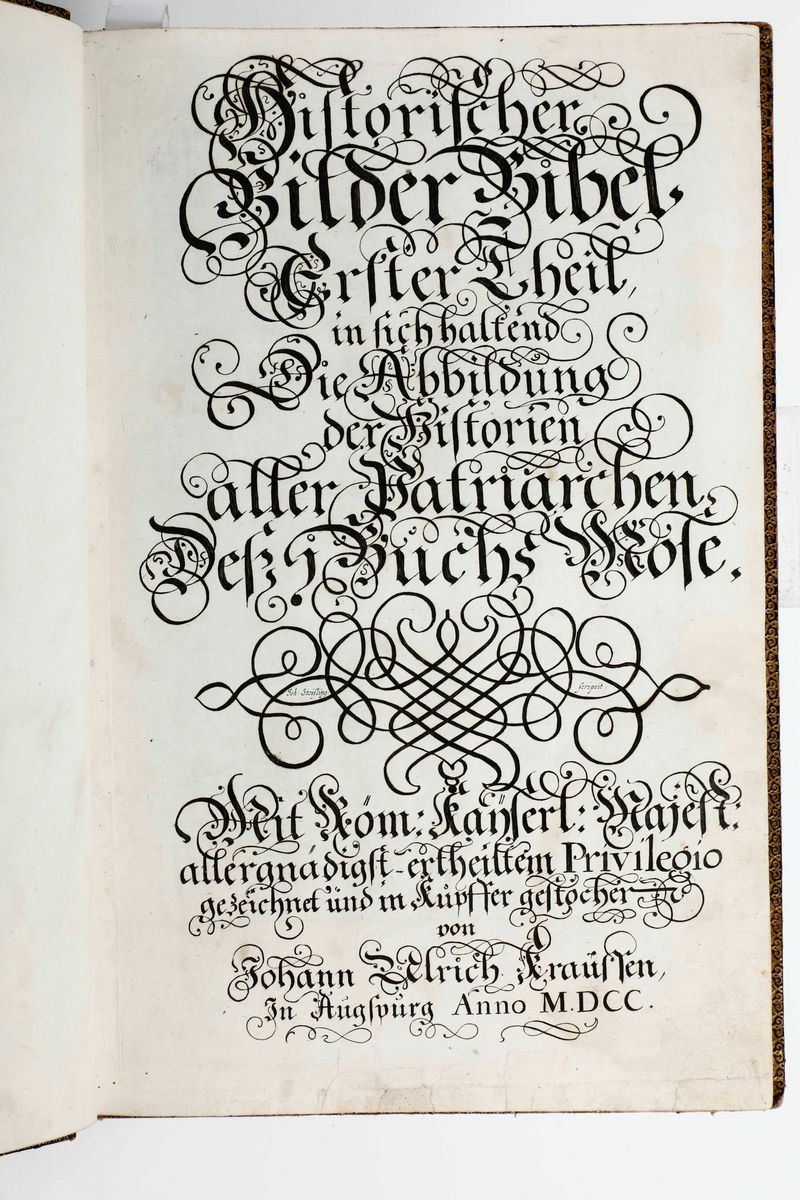 Historischer
Bilder Bibel,
Erster Theil,
in sich haltend
Die Abbildung
der Historien
aller Patriarchen,
Deß j Buchs Mose.
scripsit
Mit Röm: Kaÿserl: Majest:
allergnädigst-ertheiltem Privilegio
gezeichnet und in Kupffer gestochen
von
Johann Ulrich Kraussen,
In Augspurg Anno M.DCC.